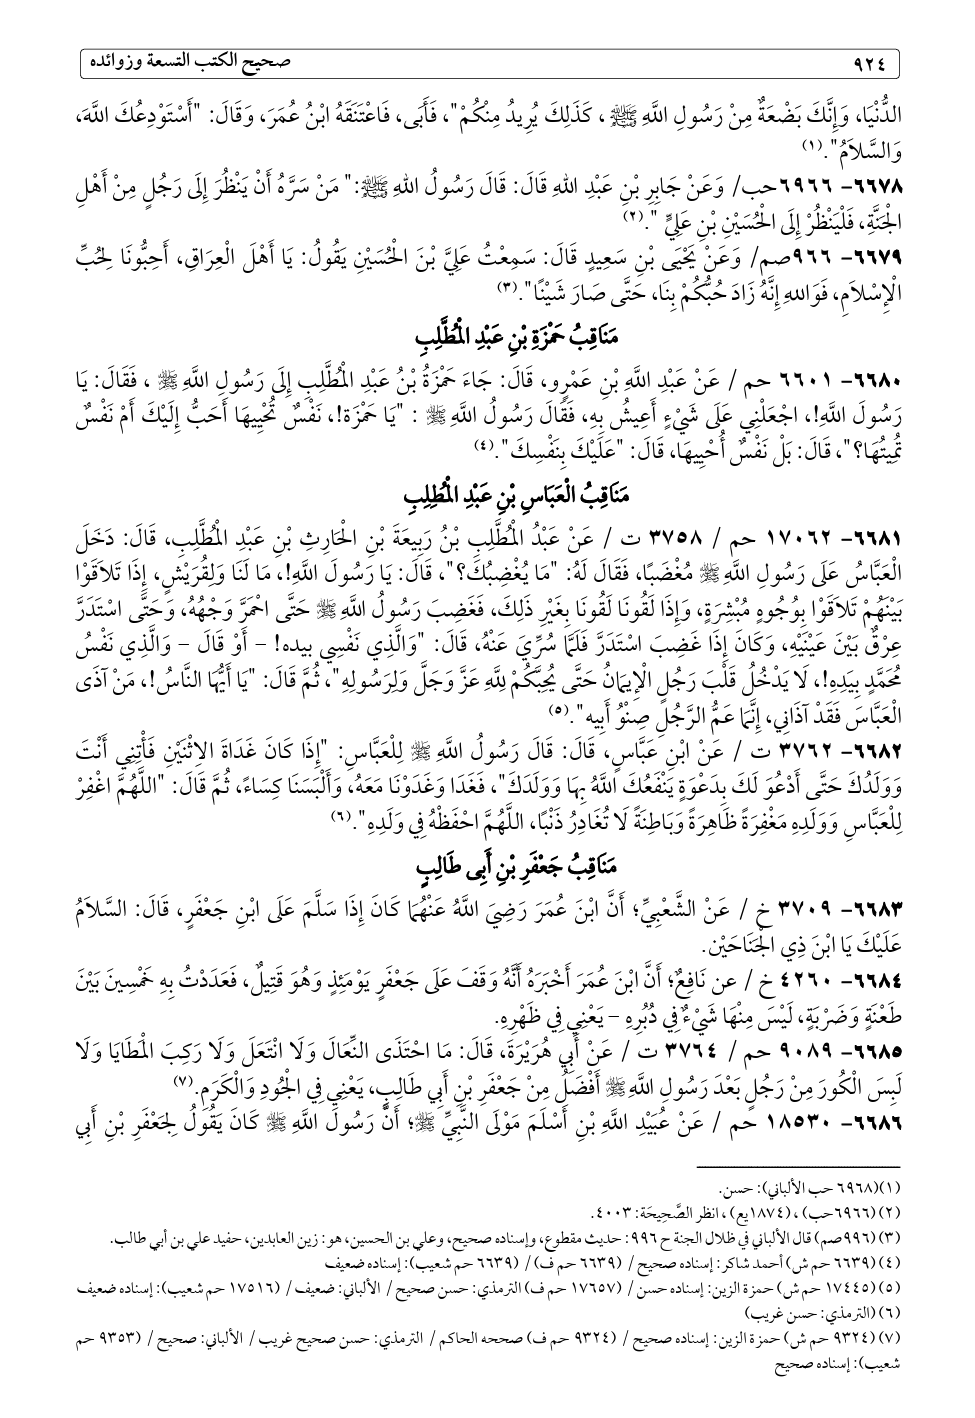 ٩٢٤ صحيح الكتب التسعة وزوائده
الدُّنْيَا، وَإِنَّكَ بَضْعَةٌ مِنْ رَسُولِ اللَّهِ ﷺ ، كَذَلِكَ يُرِيدُ مِنْكُمْ"، فَأَبَى، فَاعْتَنَقَهُ ابْنُ عُمَرَ، وَقَالَ: "أَسْتَوْدِعُكَ اللَّهَ،
وَالسَّلاَمُ".(١)
٦٦٧٨- ٦٩٦٦حب/ وَعَنْ جَابِرِ بْنِ عَبْدِ اللهِ قَالَ: قَالَ رَسُولُ اللهِ ﷺ:" مَنْ سَرَّهُ أَنْ يَنْظُرَ إِلَى رَجُلٍ مِنْ أَهْلِ
الْجَنَّةِ، فَلْيَنْظُرْ إِلَى الْحُسَيْنِ بْنِ عَلِيٍّ ".(٢)
٦٦٧٩- ٩٦٦صم/ وَعَنْ يَحْيَى بْنِ سَعِيدٍ قَالَ: سَمِعْتُ عَلِيَّ بْنَ الْحُسَيْنِ يَقُولُ: يَا أَهْلَ الْعِرَاقِ، أَحِبُّونَا لِحُبِّ
الْإِسْلاَمِ، فَوَاللهِ إِنَّهُ زَادَ حُبُّكُمْ بِنَا، حَتَّى صَارَ شَيْئًا".(٣)
مَنَاقِبُ حَمْزَةِ بْنِ عَبْدِ الْمُطَّلِبِ
٦٦٨٠- ٦٦٠١ حم / عَنْ عَبْدِ اللَّهِ بْنِ عَمْرٍو، قَالَ: جَاءَ حَمْزَةُ بْنُ عَبْدِ الْمُطَّلِبِ إِلَى رَسُولِ اللَّهِ ﷺ ، فَقَالَ: يَا
رَسُولَ اللَّهِ!، اجْعَلْنِي عَلَى شَيْءٍ أَعِيشُ بِهِ، فَقَالَ رَسُولُ اللَّهِ ﷺ : "يَا حَمْزَة!، نَفْسٌ تُحْيِيهَا أَحَبُّ إِلَيْكَ أَمْ نَفْسٌ
تُمِيتُهَا؟"، قَالَ: بَلْ نَفْسٌ أُحْيِيهَا، قَالَ: "عَلَيْكَ بِنَفْسِكَ".(٤)
مَنَاقِبُ الْعَبَاسِ بْنِ عَبْدِ الْمُطَلِبِ
٦٦٨١- ١٧٠٦٢ حم / ٣٧٥٨ ت / عَنْ عَبْدُ الْمُطَّلِبِ بْنُ رَبِيعَةَ بْنِ الْحَارِثِ بْنِ عَبْدِ الْمُطَّلِبِ، قَالَ: دَخَلَ
الْعَبَّاسُ عَلَى رَسُولِ اللَّهِ ﷺ مُغْضَبًا، فَقَالَ لَهُ: "مَا يُغْضِبُكَ؟"، قَالَ: يَا رَسُولَ اللَّهِ!، مَا لَنَا وَلِقُرَيْشٍ، إِذَا تَلاَقَوْا
بَيْنَهُمْ تَلاَقَوْا بِوُجُوهٍ مُبْشِرَةٍ، وَإِذَا لَقُونَا لَقُونَا بِغَيْرِ ذَلِكَ، فَغَضِبَ رَسُولُ اللَّهِ ﷺ حَتَّى احْمَرَّ وَجْهُهُ، وَحَتَّى اسْتَدَرَّ
عِرْقٌ بَيْنَ عَيْنَيْهِ، وَكَانَ إِذَا غَضِبَ اسْتَدَرَّ فَلَمَّا سُرِّيَ عَنْهُ، قَالَ: "وَالَّذِي نَفْسِي بيده! – أَوْ قَالَ – وَالَّذِي نَفْسُ
مُحَمَّدٍ بِيَدِهِ!، لَا يَدْخُلُ قَلْبَ رَجُلٍ الإِيمَانُ حَتَّى يُحِبَّكُمْ لِلَّهِ عَزَّ وَجَلَّ وَلِرَسُولِهِ"، ثُمَّ قَالَ: "يَا أَيُّهَا النَّاسُ!، مَنْ آذَى
الْعَبَّاسَ فَقَدْ آذَانِي، إِنَّمَا عَمُّ الرَّجُلِ صِنْوُ أَبِيه".(٥)
٦٦٨٢- ٣٧٦٢ ت / عَنْ ابْنِ عَبَّاسٍ، قَالَ: قَالَ رَسُولُ اللَّهِ ﷺ لِلْعَبَّاسِ: "إِذَا كَانَ غَدَاةَ الِاثْنَيْنِ فَأْتِنِي أَنْتَ
وَوَلَدُكَ حَتَّى أَدْعُوَ لَكَ بِدَعْوَةٍ يَنْفَعُكَ اللَّهُ بِهَا وَوَلَدَكَ"، فَغَدَا وَغَدَوْنَا مَعَهُ، وَأَلْبَسَنَا كِسَاءً، ثُمَّ قَالَ: "اللَّهُمَّ اغْفِرْ
لِلْعَبَّاسِ وَوَلَدِهِ مَغْفِرَةً ظَاهِرَةً وَبَاطِنَةً لَا تُغَادِرُ ذَنْبًا، اللَّهُمَّ احْفَظْهُ فِي وَلَدِهِ".(٦)
مَنَاقِبُ جَعْفَرِ بْنِ أَبِى طَالِبٍ
٦٦٨٣- ٣٧٠٩ خ / عَنْ الشَّعْبِيِّ؛ أَنَّ ابْنَ عُمَرَ رَضِيَ اللَّهُ عَنْهُمَا كَانَ إِذَا سَلَّمَ عَلَى ابْنِ جَعْفَرٍ، قَالَ: السَّلاَمُ
عَلَيْكَ يَا ابْنَ ذِي الْجَنَاحَيْن.
٦٦٨٤- ٤٢٦٠ خ / عن نَافِعٌ؛ أَنَّ ابْنَ عُمَرَ أَخْبَرَهُ أَنَّهُ وَقَفَ عَلَى جَعْفَرٍ يَوْمَئِذٍ وَهُوَ قَتِيلٌ، فَعَدَدْتُ بِهِ خَمْسِينَ بَيْنَ
طَعْنَةٍ وَضَرْبَةٍ، لَيْسَ مِنْهَا شَيْءٌ فِي دُبُرِهِ – يَعْنِي فِي ظَهْرِهِ.
٦٦٨٥- ٩٠٨٩ حم / ٣٧٦٤ ت / عَنْ أَبِي هُرَيْرَةَ، قَالَ: مَا احْتَذَى النِّعَالَ وَلَا انْتَعَلَ وَلَا رَكِبَ الْمَطَايَا وَلَا
لَبِسَ الْكُورَ مِنْ رَجُلٍ بَعْدَ رَسُولِ اللَّهِﷺ أَفْضَلُ مِنْ جَعْفَرِ بْنِ أَبِي طَالِبٍ، يَعْنِي فِي الْجُودِ وَالْكَرَمِ.(٧)
٦٦٨٦- ١٨٥٣٠ حم / عَنْ عُبَيْدِ اللَّهِ بْنِ أَسْلَمَ مَوْلَى النَّبِيِّ ﷺ؛ أَنَّ رَسُولَ اللَّهِ ﷺ كَانَ يَقُولُ لِجَعْفَرِ بْنِ أَبِي
(١)(٦٩٦٨ حب الألباني): حسن.
(٢) (٦٩٦٦حب) ، (١٨٧٤يع) ، انظر الصَّحِيحَة: ٤٠٠٣.
(٣) (٩٩٦صم) قال الألباني في ظلال الجنة ح ٩٩٦: حديث مقطوع، وإسناده صحيح، وعلي بن الحسين، هو: زين العابدين، حفيد علي بن أبي طالب.
(٤) (٦٦٣٩ حم ش) أحمد شاكر: إسناده صحيح / (٦٦٣٩ حم ف) / (٦٦٣٩ حم شعيب): إسناده ضعيف
(٥) (١٧٤٤٥ حم ش) حمزة الزين: إسناده حسن / (١٧٦٥٧ حم ف) الترمذي: حسن صحيح / الألباني: ضعيف / (١٧٥١٦ حم شعيب): إسناده ضعيف
(٦) (الترمذي: حسن غريب)
(٧) (٩٣٢٤ حم ش) حمزة الزين: إسناده صحيح / (٩٣٢٤ حم ف) صححه الحاكم / الترمذي: حسن صحيح غريب / الألباني: صحيح / (٩٣٥٣ حم
شعيب): إسناده صحيح